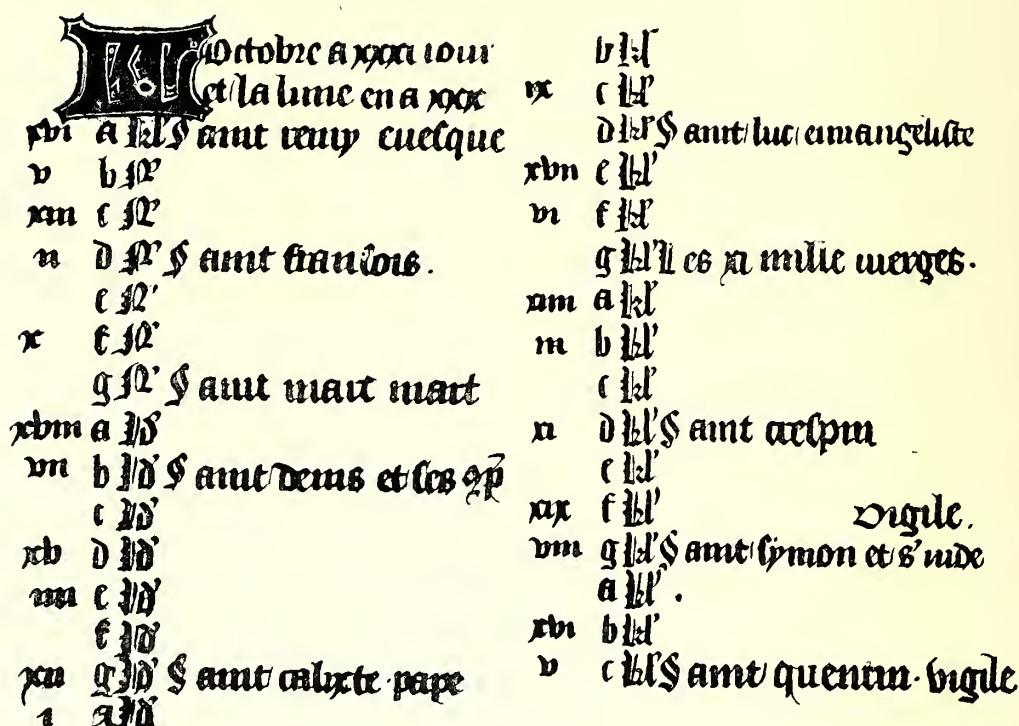 KL Octobre a xxxi iour
et la lune en a xxx
xvi a kl' Saint remy euesque
v b N'
xiii c N'
ii d N' Saint francois.
e N'
x f N'
g N' Saint marc mart
xviii a Id'
vii b Id' Saint denis et ses ꝯp̄
c Id'
xv d Id'
iiii e Id'
f Id'
xii g Id' Saint calixte pape
i a Id'
b kl'
ix c kl'
d kl' Saint luc euuangeliste
xvii e kl'
vi f kl'
g kl' Les xi mille uierges.
xiiii a kl'
iii b kl'
c kl'
xi d kl' Saint crespin
e kl'
xix f kl' Vigile.
viii g kl' Saint symon et s' iude
a kl'.
xvi b kl'
v c kl' Saint quentin. vigile